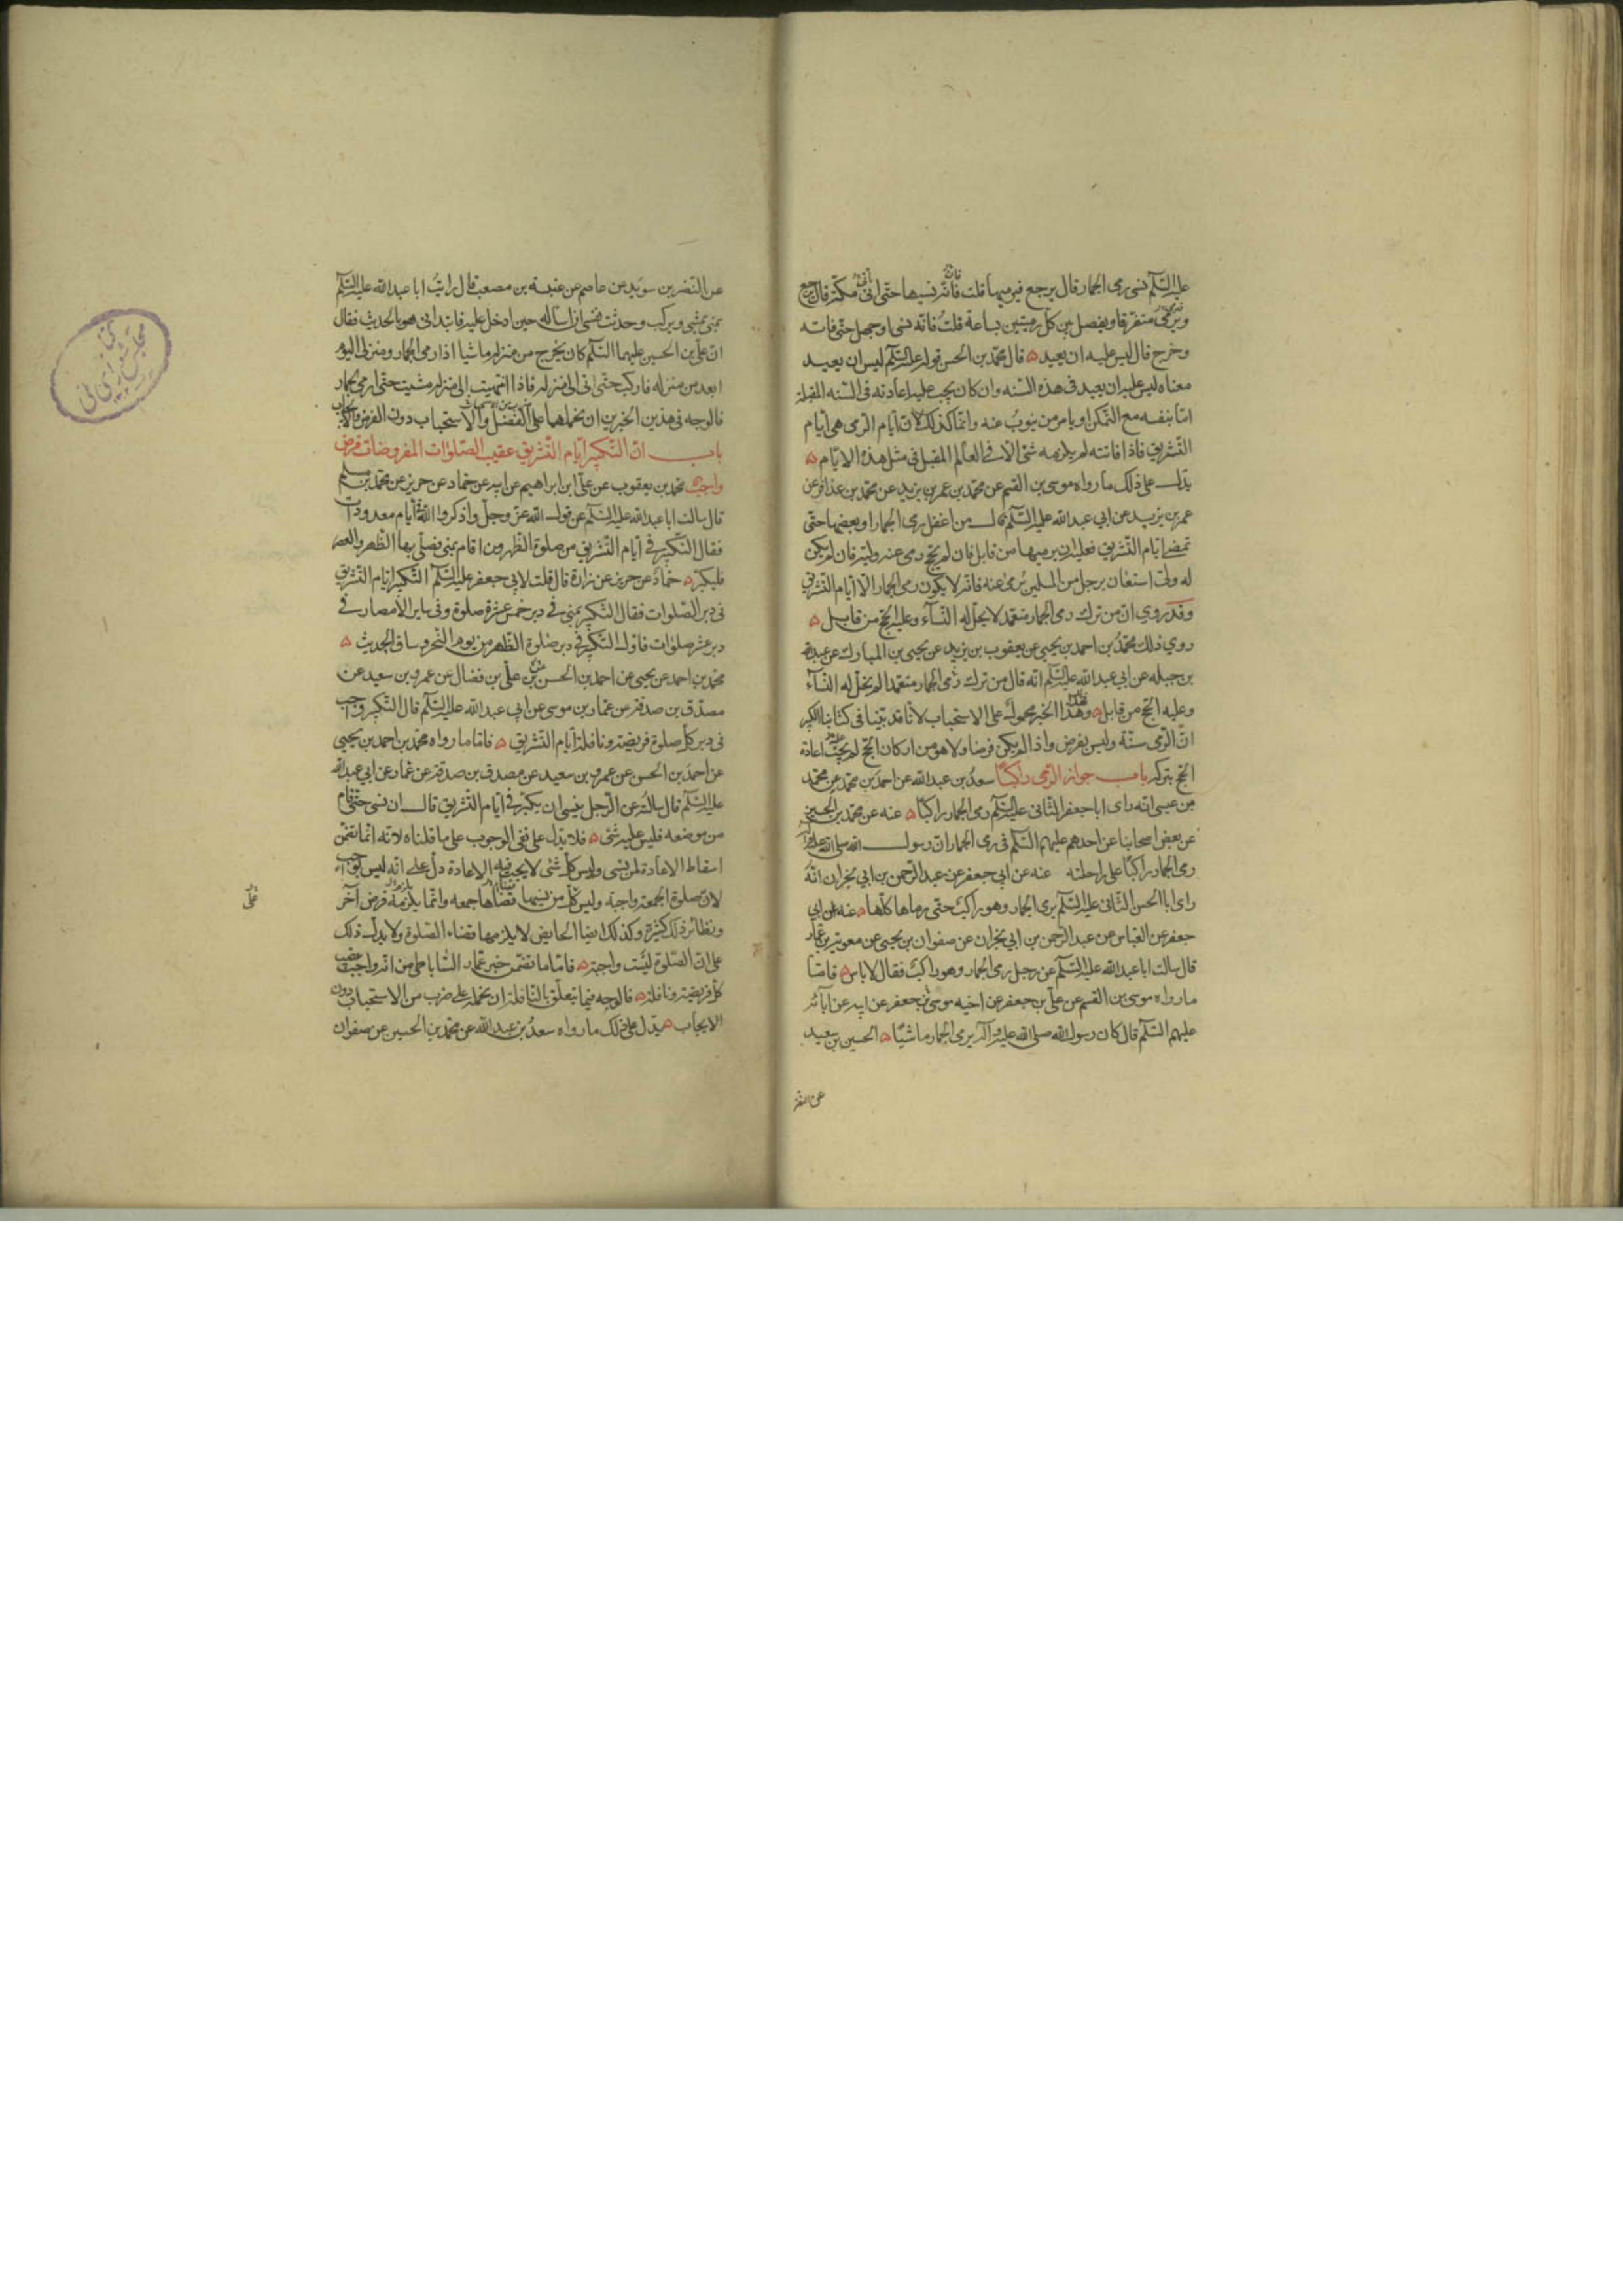 عليه السلم نسى رمى الجمار قال يرجع فيرميها قلت فانه نسيها حتى اتى مكة قال يرجع
ويرمى متفرقا ويفصل بين كل رميتين بساعة قلت فانه نسى او جهل حتى فاته
وخرج قال ليس عليه ان يعيد ه قال محمد بن الحسن قوله عليه السلم ليس ان يعيد
معناه ليس عليه ان يعيد فى هذه السنه وان كان يجب عليه اعادته فى السنه المقبلة
اما بنفسه مع التمكن او يامر من ينوب عنه وانما كذلك لان ايام الرمى هى ايام
التشريق فاذا فاتته لم يلزمه شى الا فى العام المقبل فى مثل هذه الايام ه
يدل على ذلك ما رواه موسى بن القسم عن محمد بن عمر بن يزيد عن محمد بن عذافر عن
عمر بن يزيد عن ابي عبد الله عليه السلم قال من اغفل رمى الجمار او بعضها حتى
تمضى ايام التشريق فعليه ان يرميها من قابل فان لم يحج رمى عنه وليه فان لم يكن
له ولى استعان برجل من المسلمين يرمى عنه فانه لا يكون رمى الجمار الا ايام التشريق
وقد روي ان من ترك رمى الجمار متعمدا لا يحل له النسآء وعليه الحج من قابل ه
روي ذلك محمد بن احمد بن يحيى عن يعقوب بن يزيد عن يحيى بن المبارك عن عبد الله
بن جبله عن ابي عبد الله عليه السلم انه قال من ترك رمى الجمار متعمدا لم يحل له النسآء
وعليه الحج من قابل ه وهذا الخبر محمول على الاستحباب لانا قد بينا فى كتابنا الكبير
ان الرمى سنة وليس بفرض واذا لم يكن فرضا ولا هو من اركان الحج لم يجب عليه اعادة
الحج بتركه باب جواز الرمى راكبا سعد بن عبد الله عن احمد بن محمد عن محمد
بن عيسى انه راى ابا جعفر الثانى عليه السلم رمى الجمار راكبا ه عنه عن محمد بن الحسين
عن بعض اصحابنا عن احدهم عليهم السلم فى رمى الجمار ان رسول الله صلى الله عليه وآله
رمى الجمار راكبا على راحلته عنه عن ابي جعفر عن عبد الرحمن بن ابي نجران انه
راى ابا الحسن الثانى عليه السلم يرمى الجمار وهو راكب حتى رماها كلها ه عنه عن ابي
جعفر عن العباس عن عبد الرحمن بن ابي نجران عن صفوان بن يحيى عن معوية بن عمار
قال سالت ابا عبد الله عليه السلم عن رجل رمى الجمار وهو راكب فقال لا باس ه فاما
ما رواه موسى بن القسم عن على بن جعفر عن اخيه موسى بن جعفر عن ابيه عن آبائه
عليهم السلم قال كان رسول الله صلى الله عليه وآله يرمى الجمار ماشيا ه الحسين بن سعيد
عن النضر
عن النضر بن سويد عن عاصم عن عنبسة بن مصعب قال رايت ابا عبد الله عليه السلم
بمنى يمشى ويركب وحدثت نفسى ان اساله حين ادخل عليه فابتدانى هو بالحديث فقال
ان على بن الحسين عليهما السلم كان يخرج من منزله ماشيا اذا رمى الجمار ومنزلى اليوم
ابعد من منزله فاركب حتى اتى الى منزله فاذا انتهيت الى منزله مشيت حتى ارمى الجمار
فالوجه فى هذين الخبرين ان نحملهما على الفضل والاستحباب دون الفرض والايجاب
باب ان التكبير ايام التشريق عقيب الصلوات المفروضات فرض
واجب محمد بن يعقوب عن على ابن ابراهيم عن ابيه عن حماد عن حريز عن محمد بن مسلم
قال سالت ابا عبد الله عليه السلم عن قول الله عز وجل واذكروا الله فى ايام معدودات
فقال التكبير فى ايام التشريق من صلوة الظهر ومن اقام بمنى فصلى بها الظهر والعصر
فليكبر ه حماد عن حريز عن زرارة قال قلت لابى جعفر عليه السلم التكبير ايام التشريق
فى دبر الصلوات فقال التكبير بمنى فى دبر خمس عشرة صلوة وفى ساير الامصار فى
دبر عشر صلوات فاول التكبير فى دبر صلوة الظهر من يوم النحر وساق الحديث ه
محمد بن احمد عن يحيى عن احمد بن الحسن بن على بن فضال عن عمرو بن سعيد عن
مصدق بن صدقة عن عمار بن موسى عن ابي عبد الله عليه السلم قال التكبير واجب
فى دبر كل صلوة فريضة ونافلة ايام التشريق ه فاما ما رواه محمد بن احمد بن يحيى
عن احمد بن الحسن عن عمرو بن سعيد عن مصدق بن صدقة عن عمار عن ابي عبد الله
عليه السلم قال سالته عن الرجل ينسى ان يكبر فى ايام التشريق قال ان نسى حتى قام
من موضعه فليس عليه شى ه فلا يدل على نفى الوجوب على ما قلناه لانه انما تضمن
اسقاط الاعادة لمن نسى وليس كل شى لا يجب فيه الاعادة دل على انه ليس بواجب
لان صلوة الجمعة واجبة وليس كل من نسيها قضاها جمعه وانما يلزمه فرض آخر
على
ونظائر ذلك كثيرة وكذلك ايضا الحايض لا يلزمها قضاء الصلوة ولا يدل ذلك
على ان الصلوة ليست واجبة ه فاما ما تضمن خبر عمار الساباطى من انه واجب عقيب
كل فريضة ونافلة ه فالوجه فيما يتعلق بالنافلة ان نحمله على ضرب من الاستحباب دون
الايجاب ه يدل على ذلك ما رواه سعد بن عبد الله عن محمد بن الحسين عن صفوان